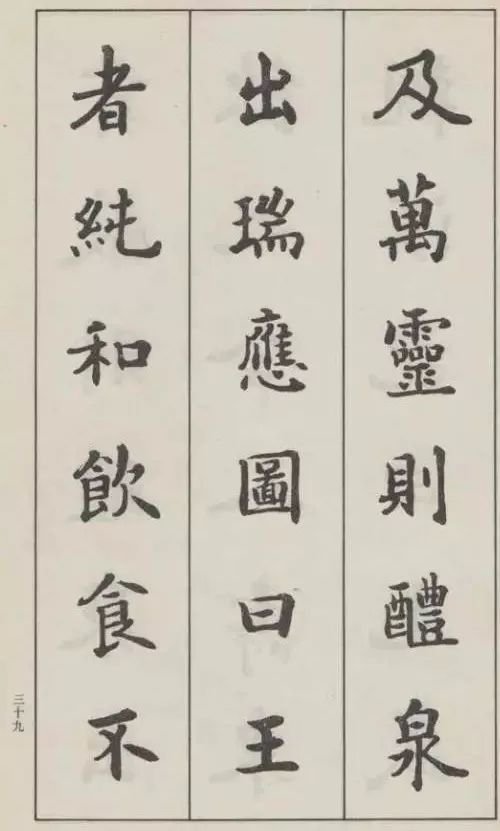 及萬靈則醴泉
出瑞應圖曰王
者純和飲食不
三十九